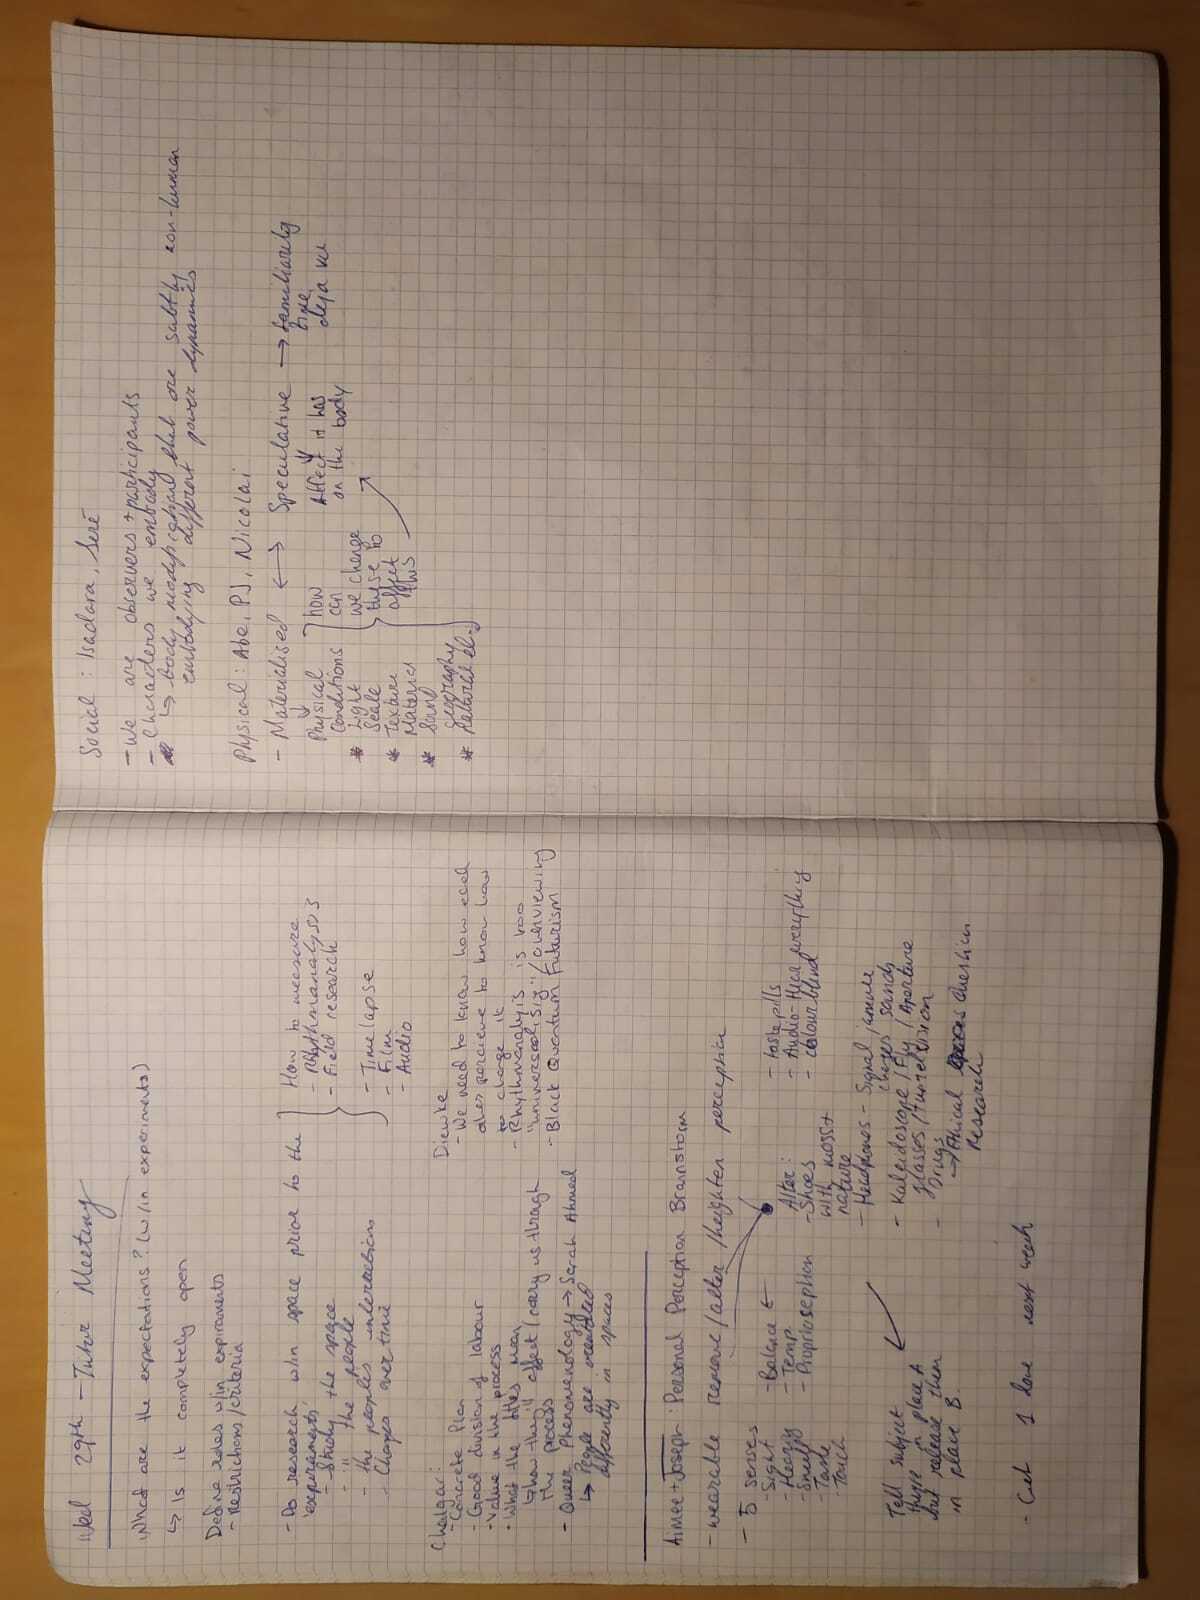 Wed 29th - Tutor Meeting
What are the expectations? (w/in experiments)
↳ Is it completely open
Define roles w/in expiraments
- Restrictions/criteria
- Do research w/in space prior to the
'experaments'
- Study the space
- " the people
- the peoples interactions
- Changes over time
How to measure
- Rhythmanalysis
- Field research
- Timelapse
- Film
- Audio
Chalgar:
- Concrete Plan
- Good division of labour
- Value in the process
- What the titles mean
↳ how they'll affect/carry us through
the process
- Queer Phenomenology → Sarah Ahmed
↳ People are orentated
differently in spaces
Diewke
- We need to know how each
other percieve to know how
to change it
- Rhythmanalyis is too
"universalisig"/overviewing
- Black Quantum Futurism
Aimee + Joseph: Personal Perception Brainstorm
- wearable remove/alter/heighten perception
- 5 senses
- Sight
- Hearing
- Smell
- Taste
- Touch
- Balance ←
- Temp.
- Proprioseption
Alter:
- Shoes
with moss +
nature
- Headphones - Signal jammer
changes sounds
- Kaleidoscope / Fly / Aperture
glasses / tunnel vision
- Drugs
→ Ethical Question
Research
- taste pills
- Audio - Hear everything
- colour blind
Tell subject
they're in place A
but release them
in place B.
- Get 1 done next week
Social: Isadara, Seré
- We are observers + participants
- Characters we embody
↳ body modification that are subtly non-human
embodying different power dynamics
Physical: Abe, PJ, Nicolai
- Materialised ↔ Speculative → familiarity
time,
deja vu
Physical
Conditions
* Light
Scale
* Texture
Material
* Sound
geography
* natural el.
how
can
we change
these to
affect
this
Affect it has
on the body